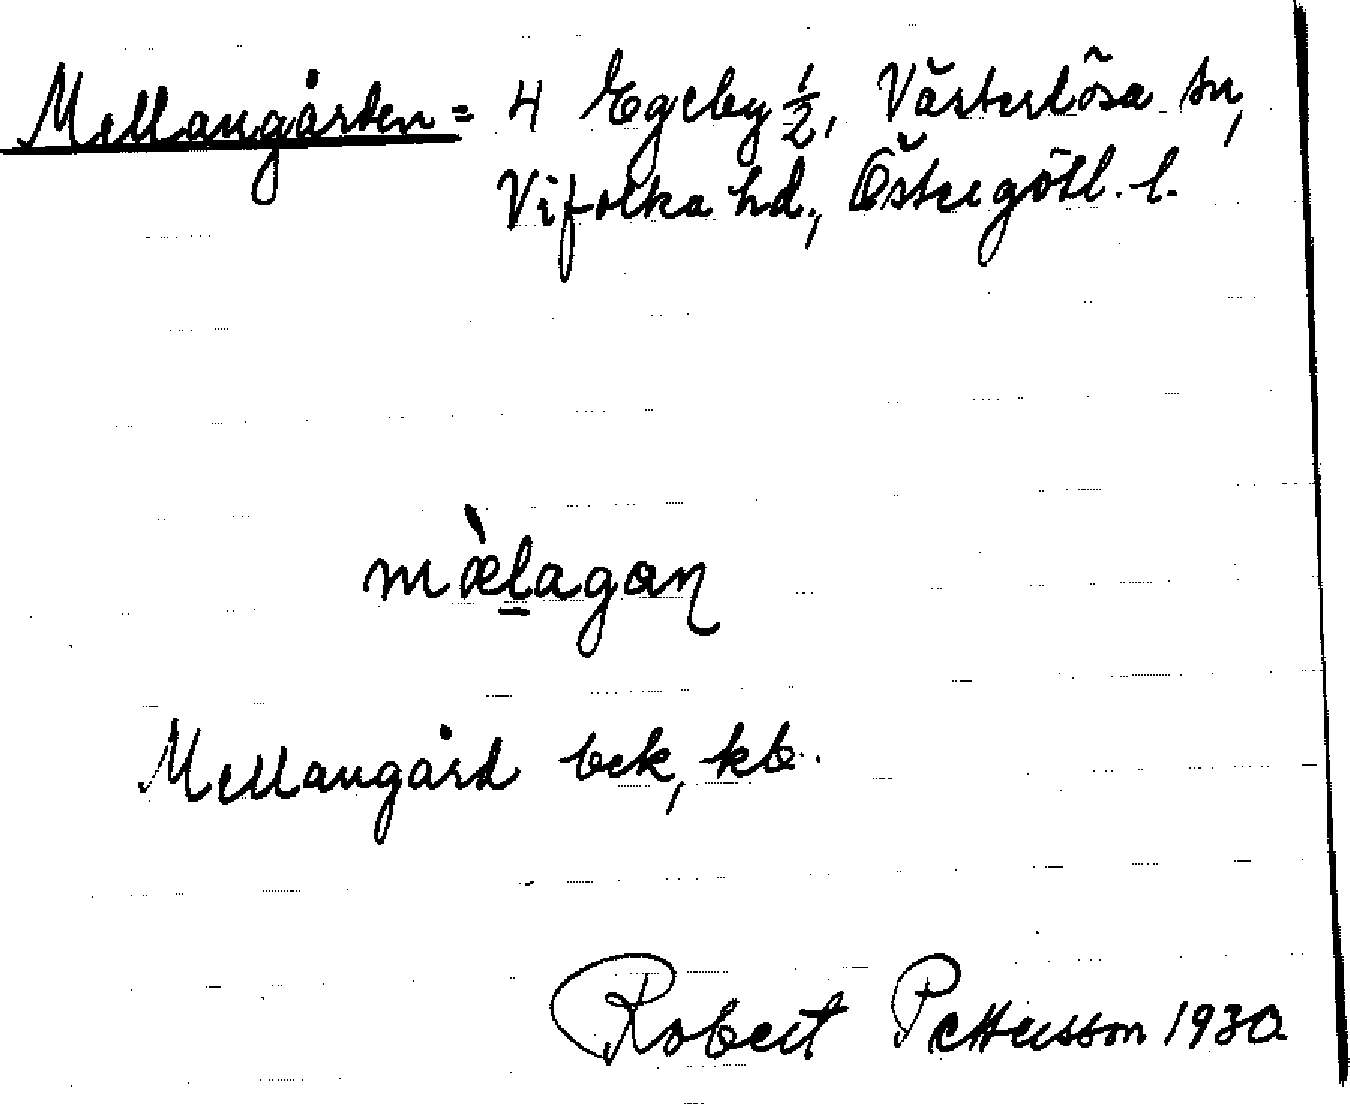 Mellangården = 4 Egeby ½, Västerlösa sn,
Vifolka hd., Östergötl. l.
mæ̀l̠agaɳ
Mellangård bek, kb.
Robert Pettersson 1930